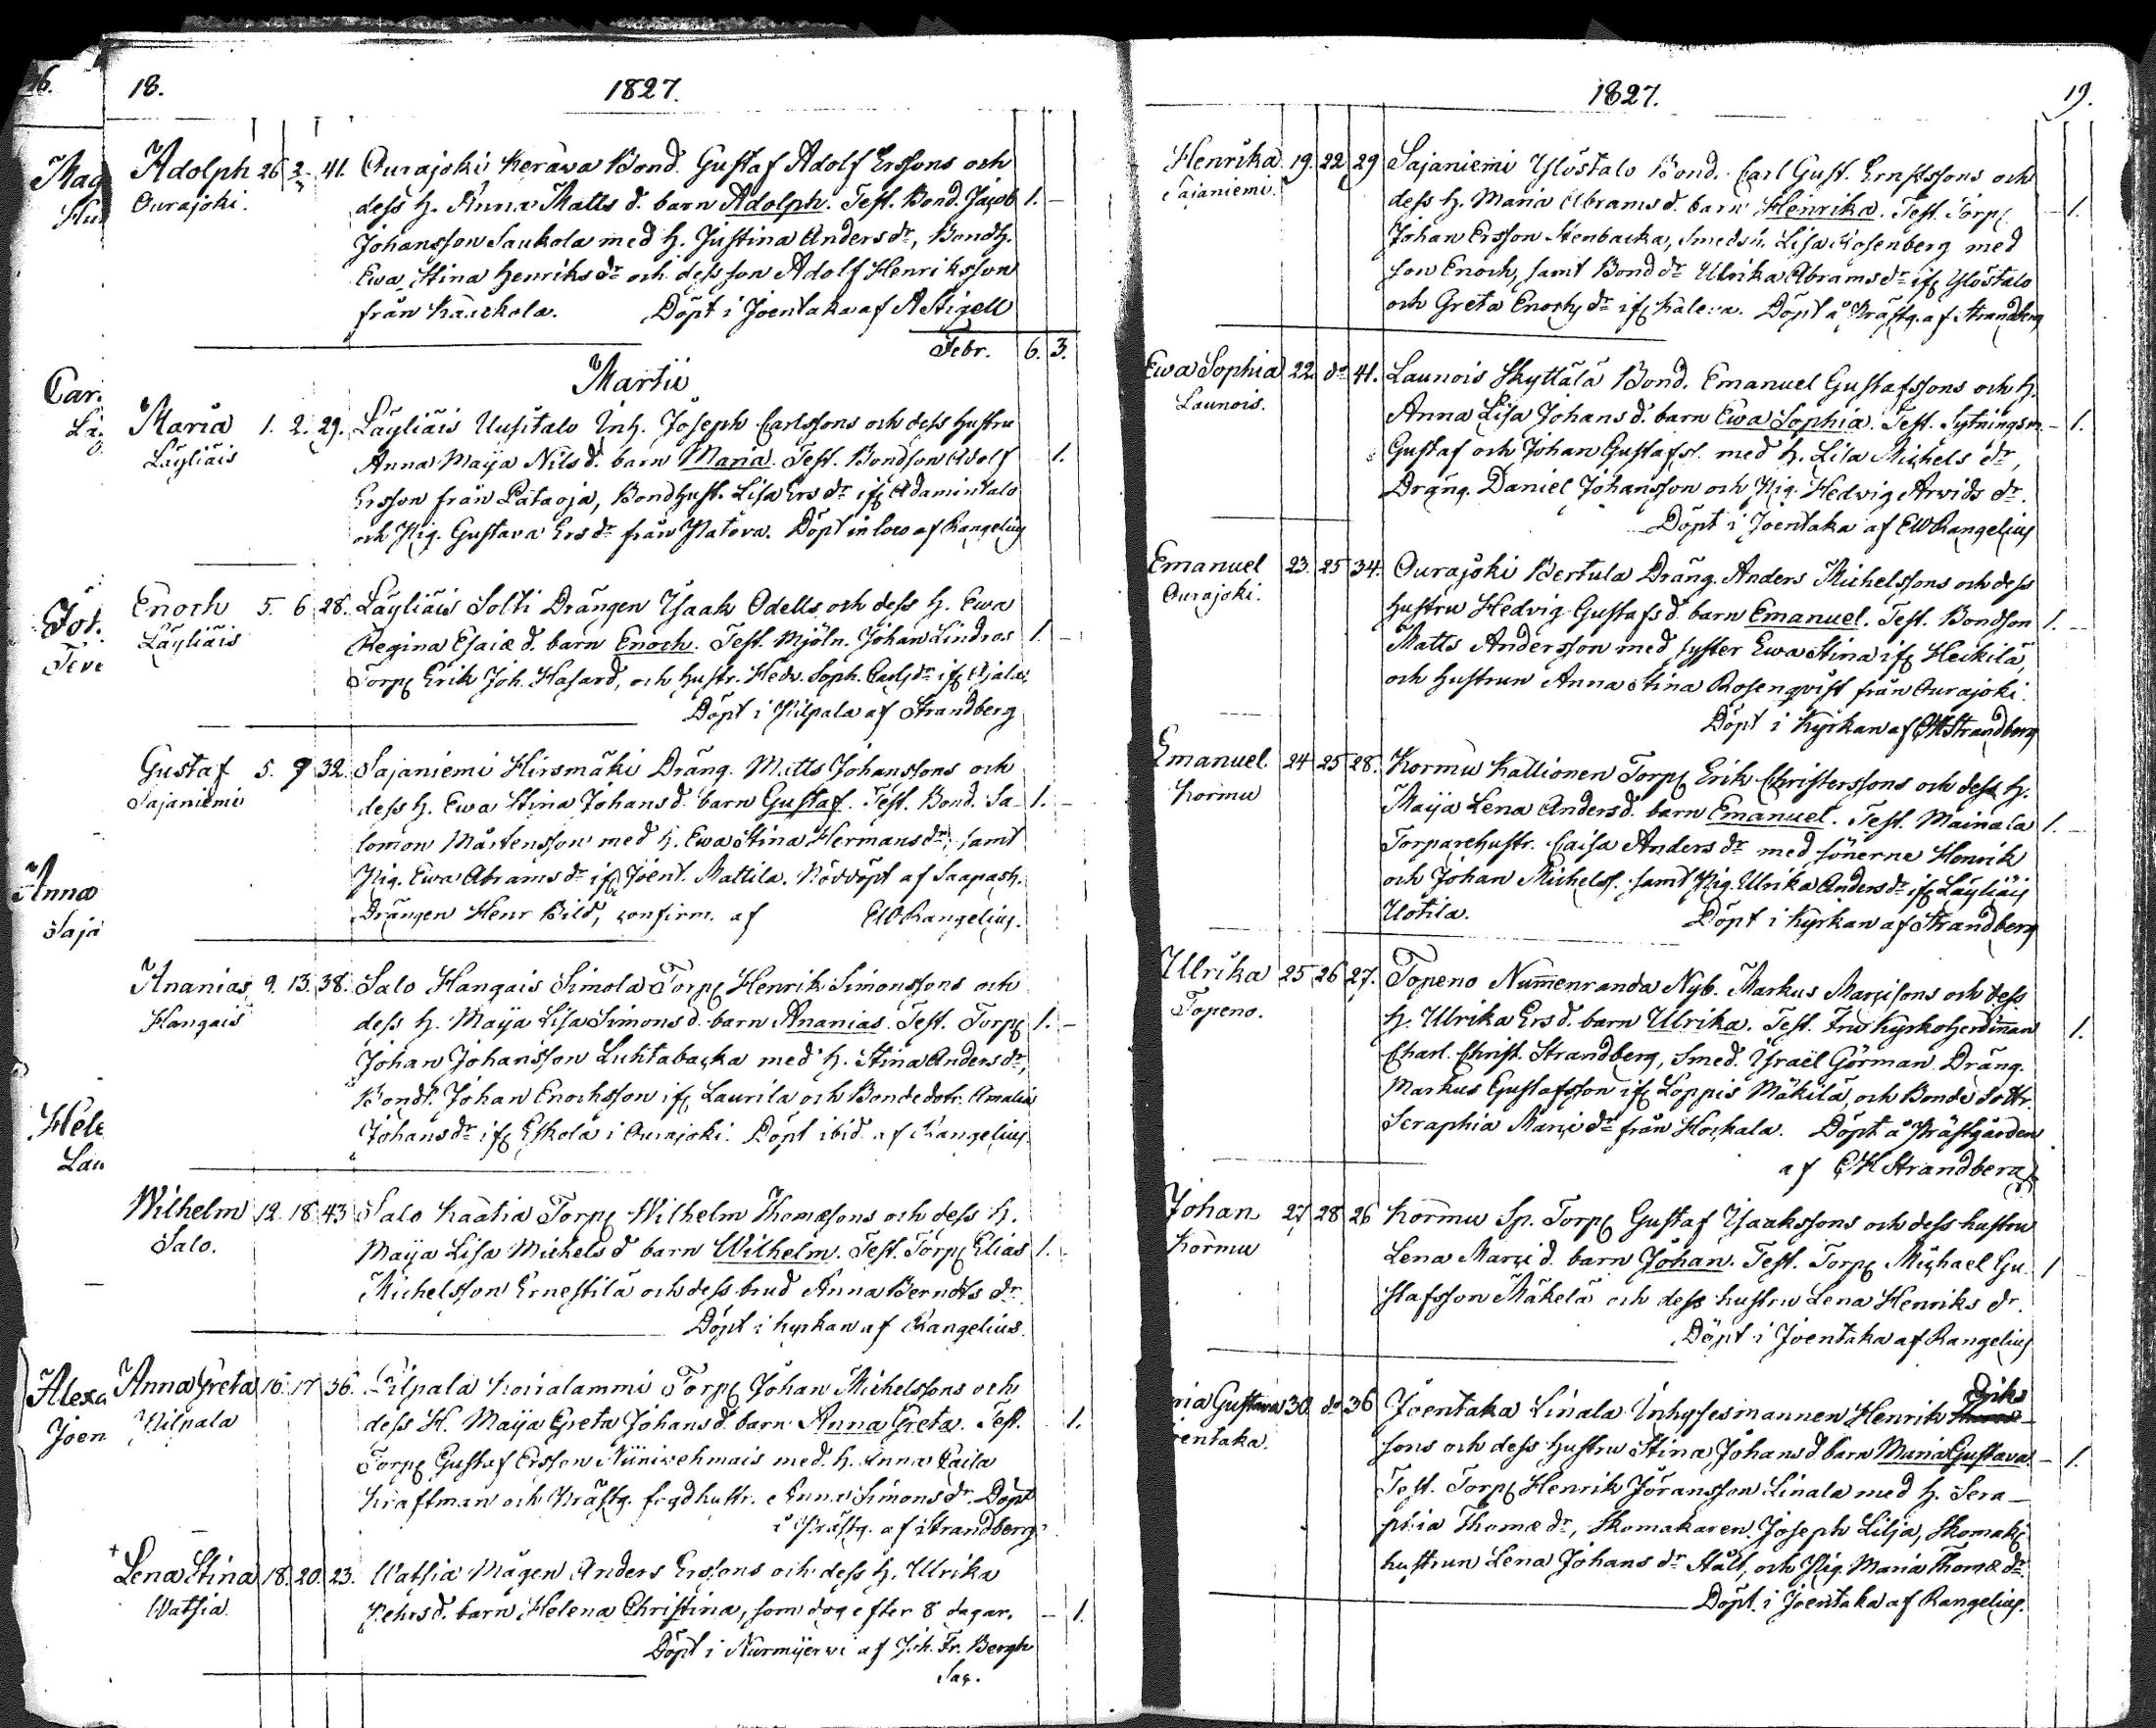 18.
1827.
Adolph 26 2/3 41. Ourajoki Kerawa Bond. Gustaf Adolf Erssons och
Ourajoki.
dess h. Anna Matts d. barn Adolph. Test. Bond. Jacob 1. –
Johansson Saukola med h. Justina Anders dr, Bondh.
Ewa Stina Henriks dr och dess son Adolf Henriksson
från Döpt i Joentaka af A Stigell
Febr. 6. 3.
Martii
Maria 1. 2. 29. Läyliäis Uusitalo Inh. Joseph Carlssons och dess hustru
Läyliäis
Anna Maija Nils d. barn Maria. Test. Bondson Adolf 1.
Ersson från Pataoja, Bondhust. Lisa Ers dr ifr Adamintalo
och Pig. Gustava Ers dr från Döpt in loco af Rangelius
Enoch 5. 6 28. Läyliäis Solti Drängen Isaak Odells och dess h. Ewa
Läyliäis
Regina Esaiæ d. barn Enoch. Test. Mjöln. Johan Lindros 1. –
Torp. Erik Joh. Hasard, och hustr. Hedv. Soph. Carls dr ifr Ojala.
Döpt i Pilpala af Strandberg
Gustaf 5. 9 32. Sajaniemi Hirsmäki Dräng. Matts Johanssons och
Sajaniemi
dess h. Ewa Stina Johans d. barn Gustaf. Test. Bond. Sa- 1. –
lomon Mårtensson med h. Ewa Stina Hermans dr, samt
Pig. Ewa Abrams dr ifr Joent. Mattila. Nöddöpt af Saapash.
Drängen Henr Bild, confirm. af EW Rangelius.
Ananias 9. 13. 38. Salo Hangais Simola Torp. Henrik Simonssons och
Hangais
dess h. Maija Lisa Simons d. barn Ananias. Test. Torp. 1. –
Johan Johansson Luhtabacka med h. Stina Anders dr,
Bonds. Johan Enochsson ifr Laurila och Bondedotr. Amalia
Johans dr ifr Eskola i Ourajoki. Döpt ibid. af Rangelius.
Wilhelm 12. 18 43 Salo Kaatia Torp. Wilhelm Thomæsons och dess h.
Salo.
Maija Lisa Michels d barn Wilhelm. Test. Torp. Elias 1. –
Michelsson Ernestilä och dess brud Anna Berndts dr.
Döpt i kyrkan af Rangelius.
Anna Greta 16. 17 36. Pilpala Koiralammi Torp. Johan Michelssons och
Pilpala
dess H. Maija Greta Johans d. barn Anna Greta. Test. 1.
Torp. Gustaf Ersson med h. Anna Caisa
Kraftman och Prästg. Anna Simons dr. Döpt
i Prästg. af Strandberg.
+ Lena Stina 18. 20. 23. Watsia Mågen Anders Erssons och dess h. Ulrika
Watsia.
Pehrs d. barn Helena Christina, som dog efter 8 dagar. – 1.
Döpt i Nurmijerwi af Joh. Fr. Bergh
Sac.
1827.
19.
Henrika 19. 22 29 Sajaniemi Ylöstalo Bond. Carl Gust. Ernstssons och
Sajaniemi.
dess h. Maria Abrams d. barn Henrika. Test. Torp. – 1.
Johan Ersson Stenbacka, Smeds h. Lisa Rosenberg med
son Enoch, samt Bond dr Ulrika Abrams dr ifr Ylöstalo
och Greta Enochs dr ifr Döpt å Prästg. af Strandberg
Ewa Sophia 22. do 41. Launois Skyttälä Bond. Emanuel Gustafssons och h.
Launois.
Anna Lisa Johans d. barn Ewa Sophia. Test. Sytningsm. – 1.
Gustaf och Johan Gustafss. med h. Lisa Michels dr,
Dräng. Daniel Johansson och Pig. Hedvig Arvids dr.
Döpt i Joentaka af EW Rangelius
Emanuel 23. 25 34. Ourajoki Bertula Dräng. Anders Michelssons och dess
Ourajoki.
hustru Hedvig Gustafs d. barn Emanuel. Test. Bondson 1. –
Matts Andersson med syster Ewa Stina ifr Heikilä,
och hustrun Anna Stina Rosenqvist från Ourajoki.
Döpt i Kyrkan af CH Strandberg
Emanuel. 24 25 28. Kormu Kallionen Torp. Erik Christerssons och dess h.
Kormu
Maija Lena Anders d. barn Emanuel. Test. Mainala 1. –
Torparehustr. Caisa Anders dr med sönerne Henrik
och Johan Michelss. samt Pig. Ulrika Anders dr ifr Läyliäis
Uotila. Döpt i Kyrkan af Strandberg
Ulrika 25 26 27. Topeno Nummenranda Nyb. Markus Marcisons och dess
Topeno.
h. Ulrika Ers d. barn Ulrika. Test. Fru Kyrkoherdinnan 1.
Charl. Christ. Strandberg, Smed. Israël Görman. Dräng.
Markus Gustafsson ifr Loppis Mäkilä, och Bonde dottr.
Seraphia Marci dr från Hockala. Döpt å Prästgården
af CH Strandberg
Johan 27 28 26 Kormu Sp. Torp. Gustaf Isaakssons och dess hustru
Kormu
Lena Marci d. barn Johan. Test. Torp. Michael Gu- 1 –
stafsson Mäkelä och dess hustru Lena Henriks dr.
Döpt i Joentaka af Rangelius
ria Gustava 30. do 36 Joentaka Linala Inhysesmannen Henrik Eriks
entaka.
sons och dess hustru Stina Johans d. barn Maria Gustava. – 1.
Test. Torp. Henrik Jöransson Linala med h. Sera-
phia Thomæ dr, Skomakaren Joseph Lilja, Skomak.
hustrun Lena Johans dr Stålt, och Pig. Maria Thomæ dr
Döpt i Joentaka af Rangelius.